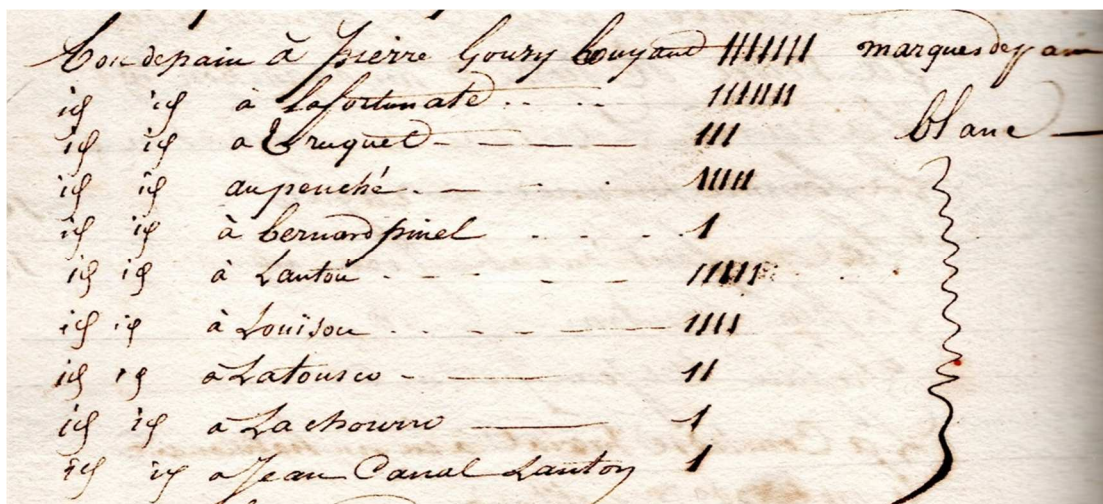 bon de pain à pierre Goury Couyaud 11111111 marques de pain
id id à Lafortunate . . . . 1111111 blanc —
id id a Truquet - - — — 111
id id au penché . - - - — 11111
id id à bernard pinel . . . . - 1
id id à Lantoù - - . - — 111111
id id à Louïsou . . . - - — 1111
id id a Latousco - - — 11
id id a La chourro — 1
id id a Jean Canal Lanton 1